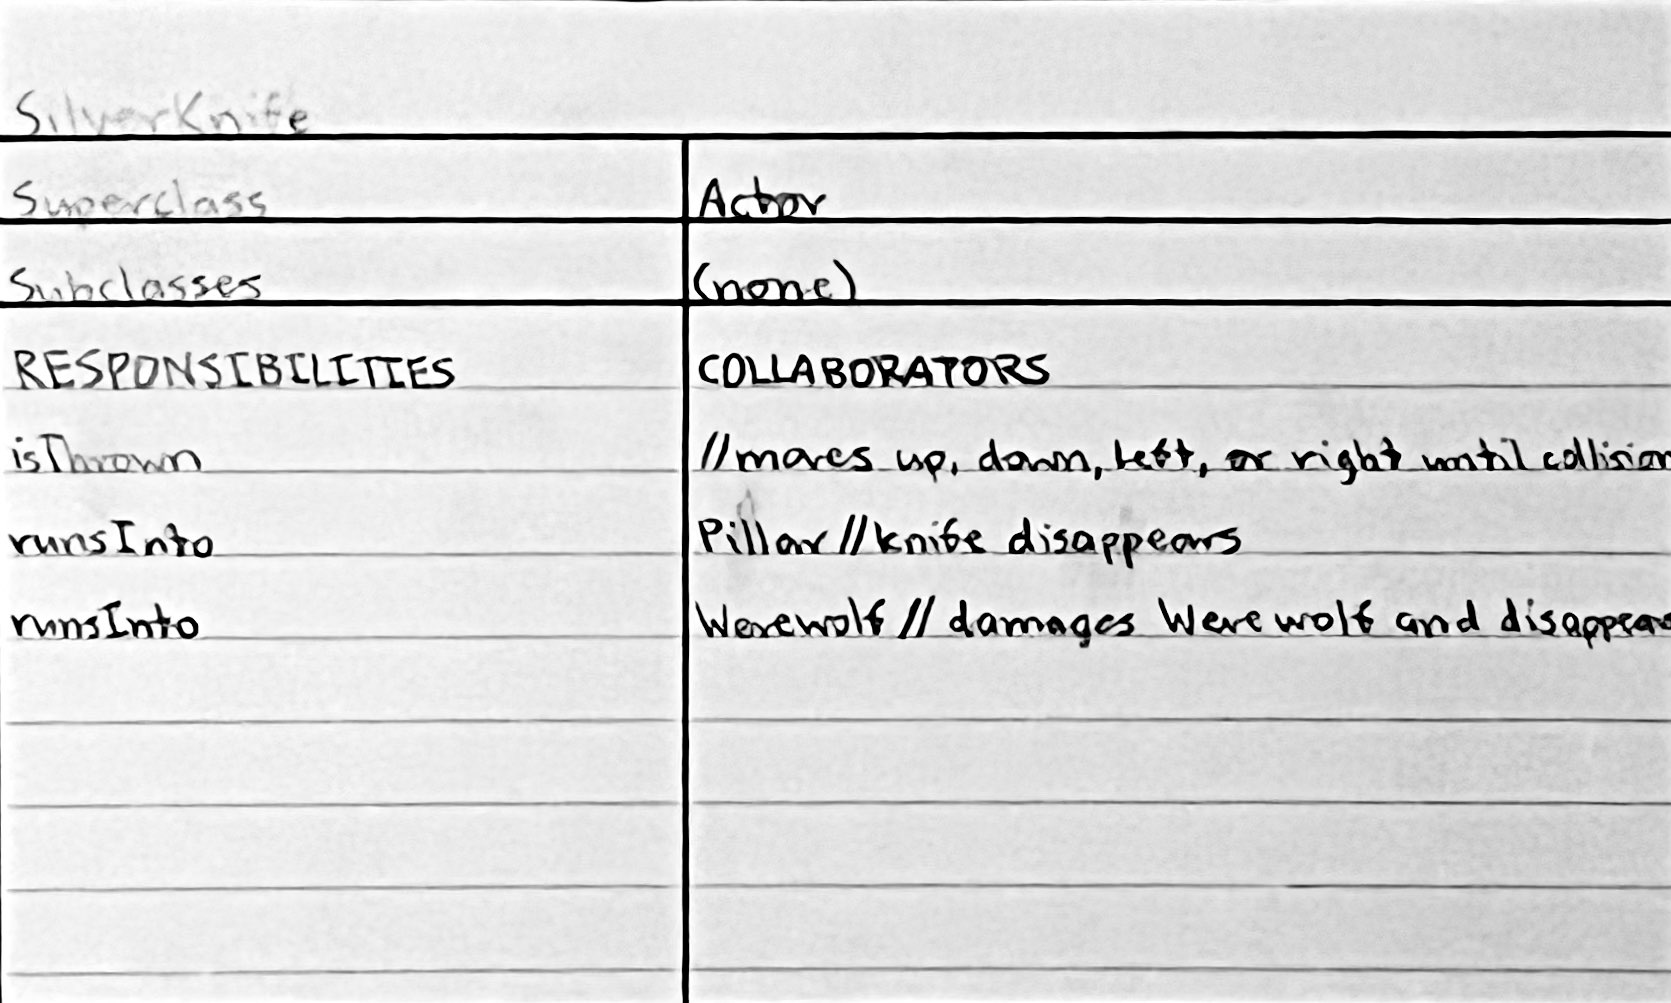 SilverKnife
Superclass Actor
Subclasses (none)
RESPONSIBILITIES COLLABORATORS
isThrown //moves up, down, left, or right until collision
runsInto Pillar //knife disappears
runsInto Werewolf // damages Werewolf and disappears